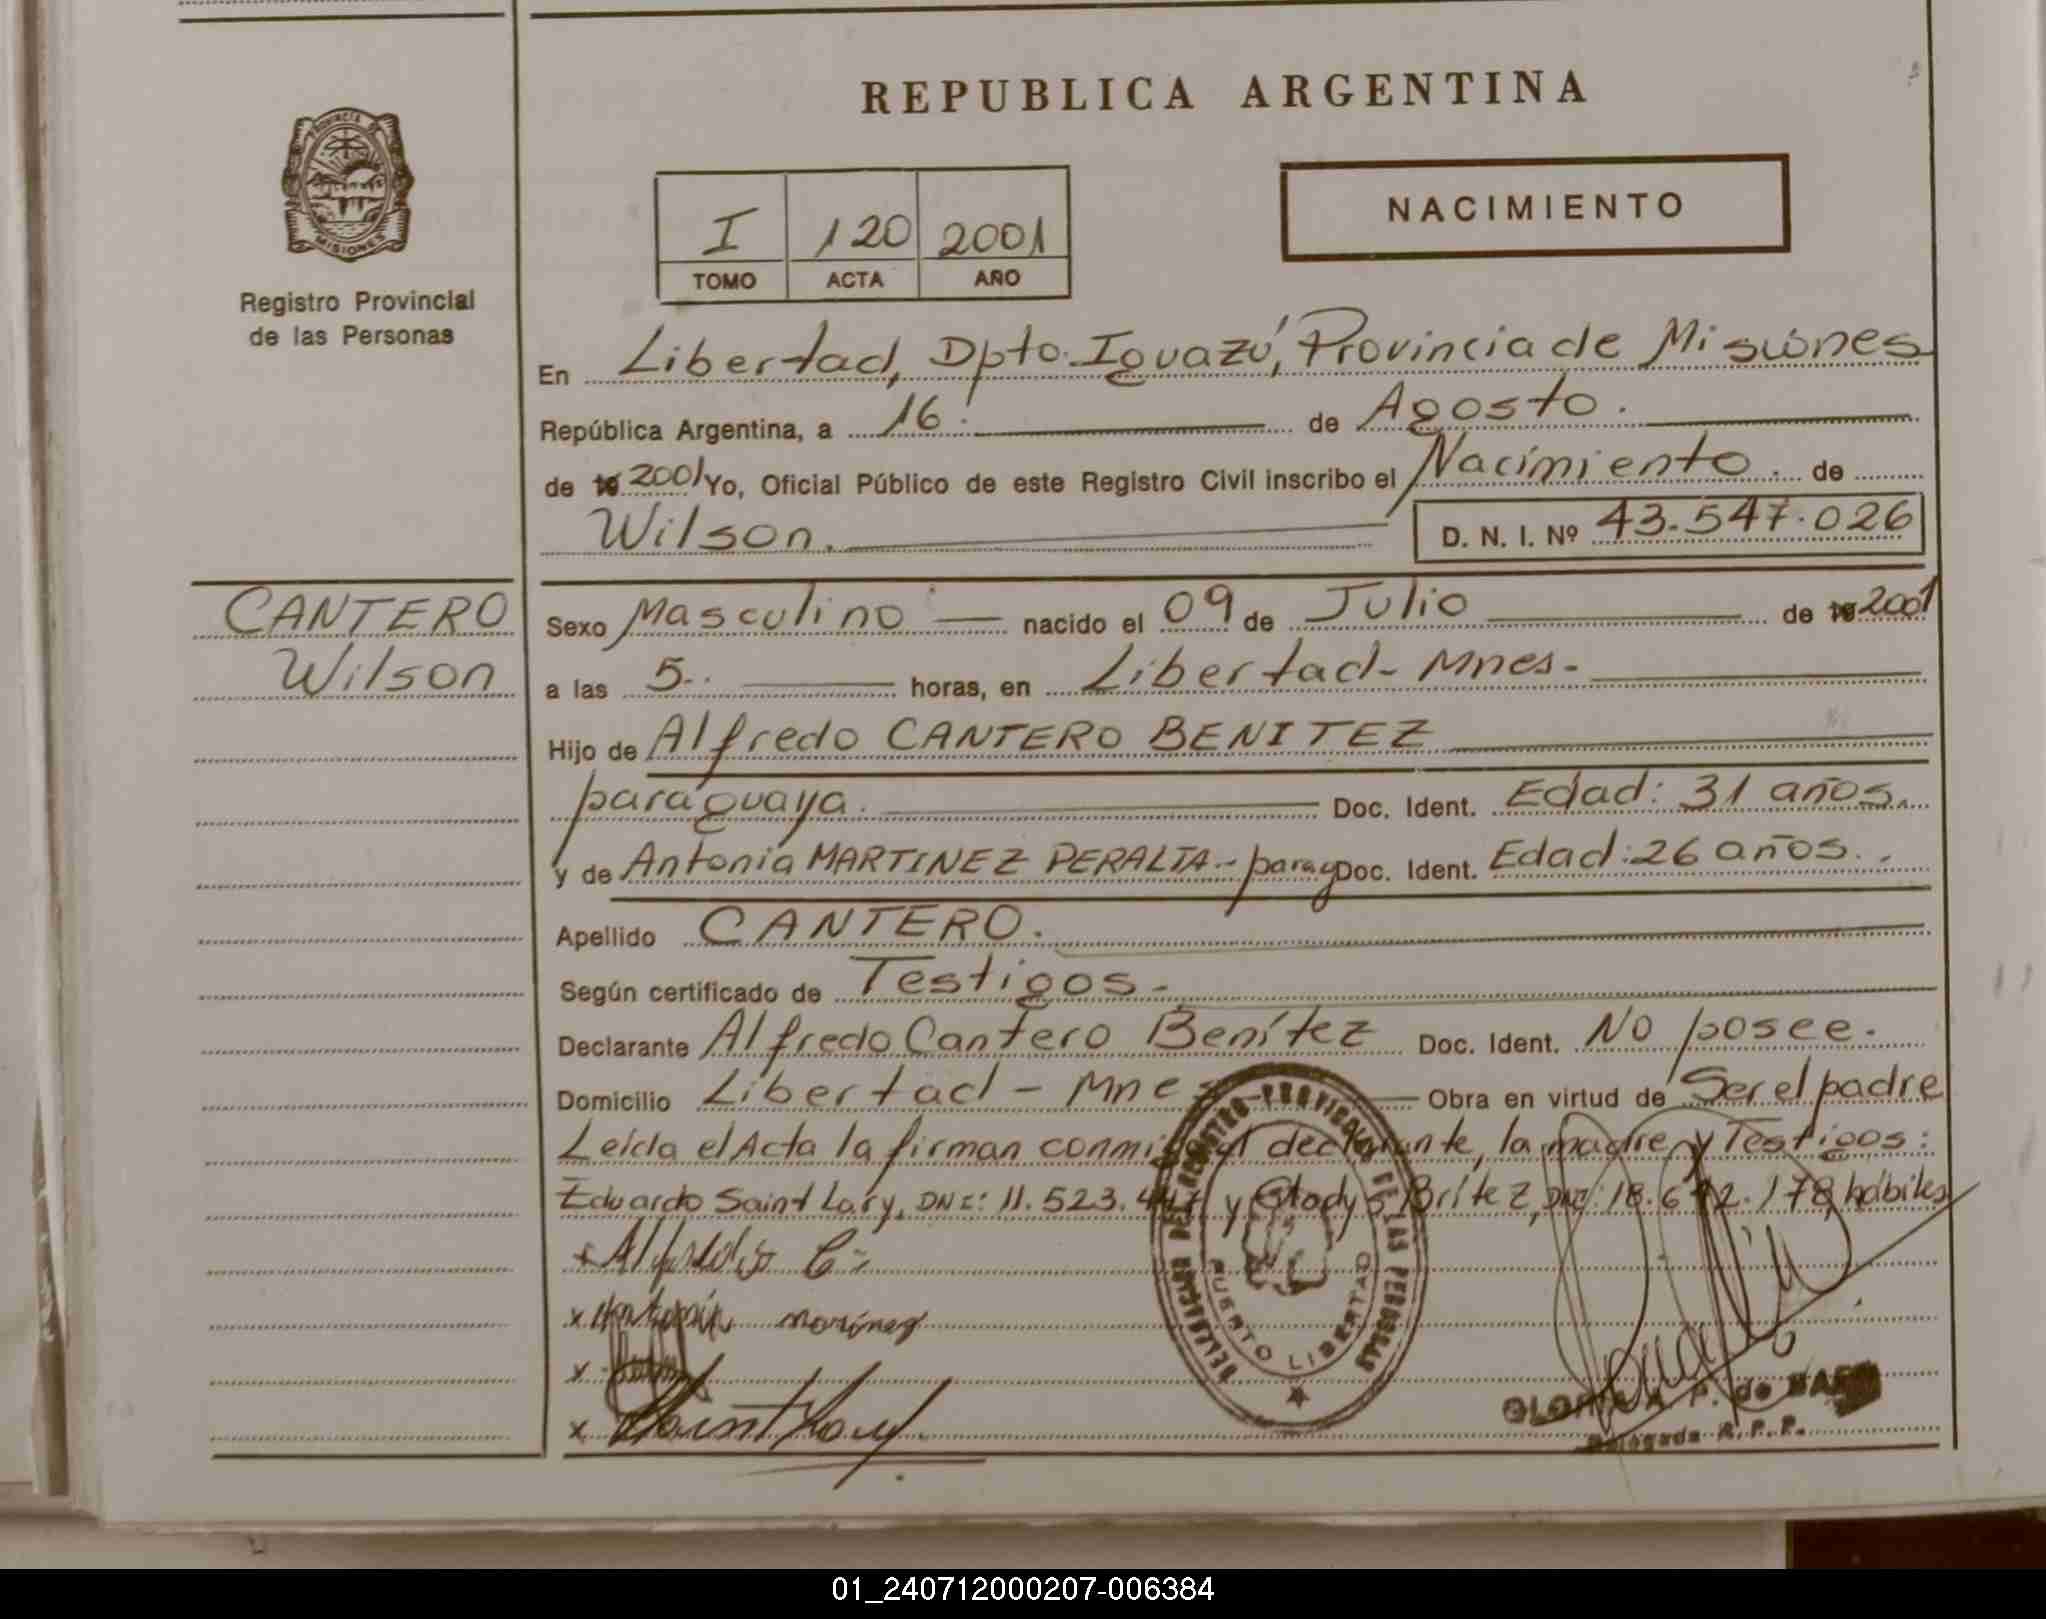 REPUBLICA ARGENTINA
PROVINCIA DE
MISIONES
Registro Provincial
de las Personas
I 120 2001
TOMO ACTA AÑO
NACIMIENTO
En Libertad, Dpto. Iguazú, Provincia de Misiones
República Argentina, a 16. de Agosto.
de 19 2001 Yo, Oficial Público de este Registro Civil inscribo el Nacimiento. de
Wilson. D. N. I. Nº 43.547.026
CANTERO
Wilson
Sexo Masculino nacido el 09 de Julio de 19 2001
a las 5.. horas, en Libertad- Mnes-
Hijo de Alfredo CANTERO BENITEZ
paraguaya. Doc. Ident. Edad: 31 años.
y de Antonia MARTINEZ PERALTA- paray Doc. Ident. Edad: 26 años.
Apellido CANTERO.
Según certificado de Testigos-
Declarante Alfredo Cantero Benítez Doc. Ident. No posee.
Domicilio Libertad - Mnes Obra en virtud de Ser el padre
Leída el Acta la firman conmigo el declarante, la madre y Testigos:
Eduardo Saint Lary, DNI: 11.523. y Glady s Brítez, DNI: 18.6 2.178, hábiles
x Alfredo C
x Antonia
x
x Saint Lary
DELEGACION DEL REGISTRO PROVINCIAL DE LAS PERSONAS
PUERTO LIBERTAD
GLORIA P. de
Delegada R.P.P.
01_240712000207-006384